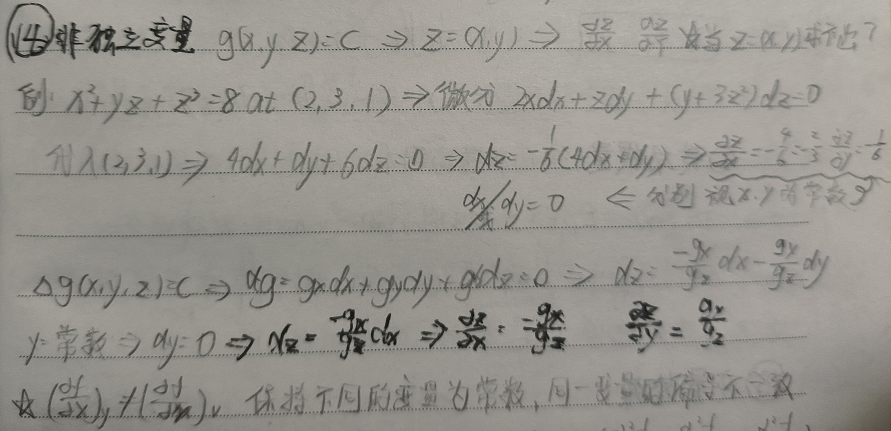 (14) 非独立变量 g(x,y,z)=C ⇒ z=(x,y) ⇒ ∂z/∂x ∂z/∂y ☆当z=(x,y)求不出?
例: x²+yz+z³=8 at (2,3,1) ⇒ 微分 2xdx+zdy+(y+3z²)dz=0
代入(2,3,1) ⇒ 4dx+dy+6dz=0 ⇒ dz=-1/6(4dx+dy) ⇒ ∂z/∂x=-4/6=-2/3 ∂z/∂y=-1/6
dx/dy=0 ⇐ 分别视x.y为常数
△g(x,y,z)=C ⇒ dg=gxdx+gydy+gzdz=0 ⇒ dz=-gx/gz dx-gy/gz dy
y=常数 ⇒ dy=0 ⇒ dz=-gx/gz dx ⇒ ∂z/∂x=-gx/gz ∂z/∂y=gy/gz
☆(∂f/∂x)y≠(∂f/∂x)v 保持不同的变量为常数,同一变量的偏导不一致